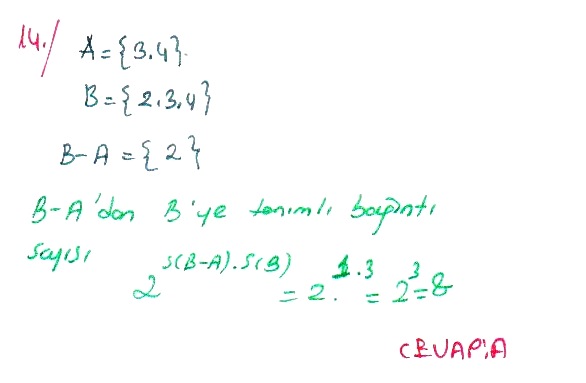 14./ A={3,4}.
B={2,3,4}
B-A={2}
B-A'dan B'ye tanımlı bağıntı
sayısı
2^{s(B-A).s(B)} = 2^{1.3} = 2^3 = 8
CEVAP:A